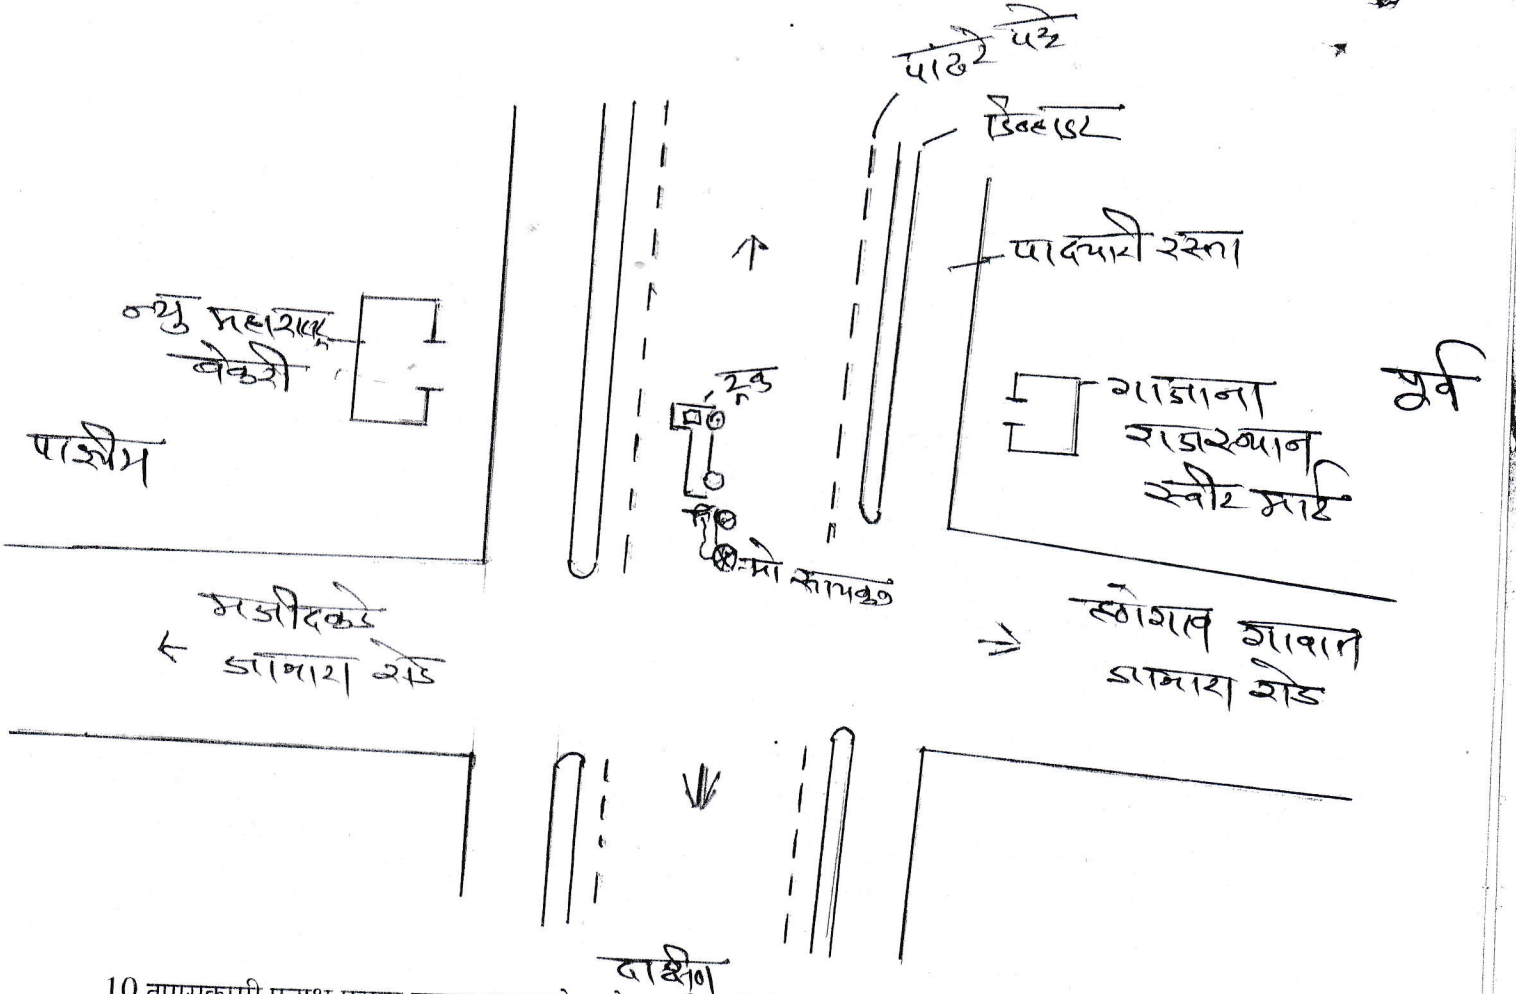 पांढरे पट्टे
डिव्हाडर
पादचारी रस्ता
न्यु महाराष्ट्र
बेकरी
ट्रक
पूर्व
राजस्थान
स्वीट मार्ट
पाश्चीम
मो सायकल
मजीदकडे
जाणारा रोड
गावात
जाणारा रोड
दाक्षीण